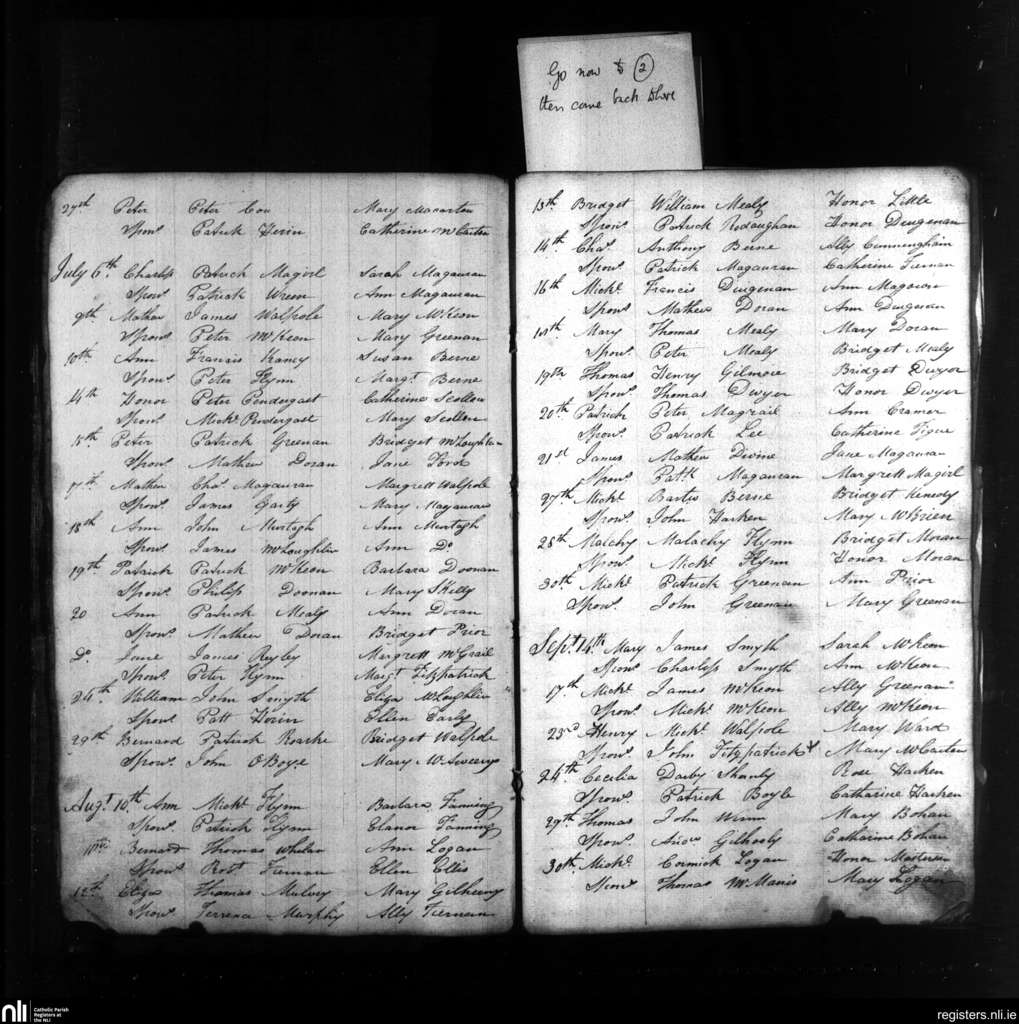 Go now to 2
then come back here
27th Peter Peter Cox Mary Macarton
Spons. Patrick Herin Catherine McCartin
July 6th Charless Patrick Magirl Sarah Magauran
Spons. Patrick Wrenn Ann Magauran
9th Mathew James Walpole Mary McKeon
Spons. Peter McKeon Mary Greenan
10th Ann Francis Kaney Susan Berne
Spons. Peter Flynn Margt. Berne
14th Honor Peter Pendergast Catherine Scollon
Spons. Michl. Pendergast Mary Scollon
15th Peter Patrick Greenan Bridget McLoughlin
Spons. Mathew Doran Jane
17th Mathew Chas. Magauran Margrett Walpole
Spons. James Garty Mary Magauran
18th Ann John Murtagh Ann Murtagh
Spons. James McLoughlin Ann Do.
19th Patrick Patrick McKeon Barbara Doonan
Spons. Philip Doonan Mary Skelly
20 Ann Patrick Mealy Ann Doran
Spons. Mathew Doran Bridget Prior
Do. James Reyley Margrett McGrail
Spons. Peter Flynn Margt. Fitzpatrick
24th William John Smyth Eliza McLoughlin
Spons. Patt Horin Ellen Early
29th Bernard Patrick Roarke Bridget Walpole
Spons. John OBoyle Mary McSweeny
Augt. 10th Ann Michl. Flynn Barbara Fanning
Spons. Patrick Flynn Elanor Fanning
11th Bernard Thomas Whelan Ann Logan
Spons. Robt. Ellen Ellis
12th Eliza Thomas Mulvey Mary Gilheeny
Spons. Terrence Murphy Ally Tiernan
13th Bridget William Mealy Honor Little
Spons. Patrick Rodaughan Honor Duigenan
14th Chas. Anthony Berne Ally Cunningham
Spons. Patrick Magauran Catherine Tiernan
16th Michl. Francis Duigenan Ann Magowan
Spons. Mathew Doran Ann Duigenan
18th Mary Thomas Mealy Mary Doran
Spons. Peter Mealy Bridget Mealy
19th Thomas Henry Gilmore Bridget Dwyer
Spons. Thomas Dwyer Honor Dwyer
20th Patrick Peter Magrail Ann Cramer
Spons. Patrick Lee Catherine Tigue
21st James Mathew Divine Jane Magauran
Spons. Pattk. Magauran Margrett Magirl
27th Michl. Bartw. Berne Bridget Kenedy
Spons. John Harken Mary McBrien
28th Malachy Malachy Flynn Bridget Moran
Spons. Michl. Flynn Honor Moran
30th Michl. Patrick Greenan Ann Prior
Spons. John Greenan Mary Greenan
Sept. 14th Mary James Smyth Sarah McKeon
Spons. Charless Smyth Ann McKeon
17th Michl. James McKeon Ally Greenan
Spons. Michl. McKeon Ally McKeon
23rd Henry Michl. Walpole Mary Ward
Spons. John Fitzpatrick Mary McCartin
24th Cecilia Darby Shanly Rose Harken
Spons. Patrick Boyle Catharine Harken
29th Thomas John Wrinn Mary Bohan
Spons. Andw. Gilhooly Catharine Bohan
30th Michl. Cormick Logan Honor Masterson
Spons. Thomas McManis Mary Logan
nli
Catholic Parish
Registers at
the NLI
registers.nli.ie